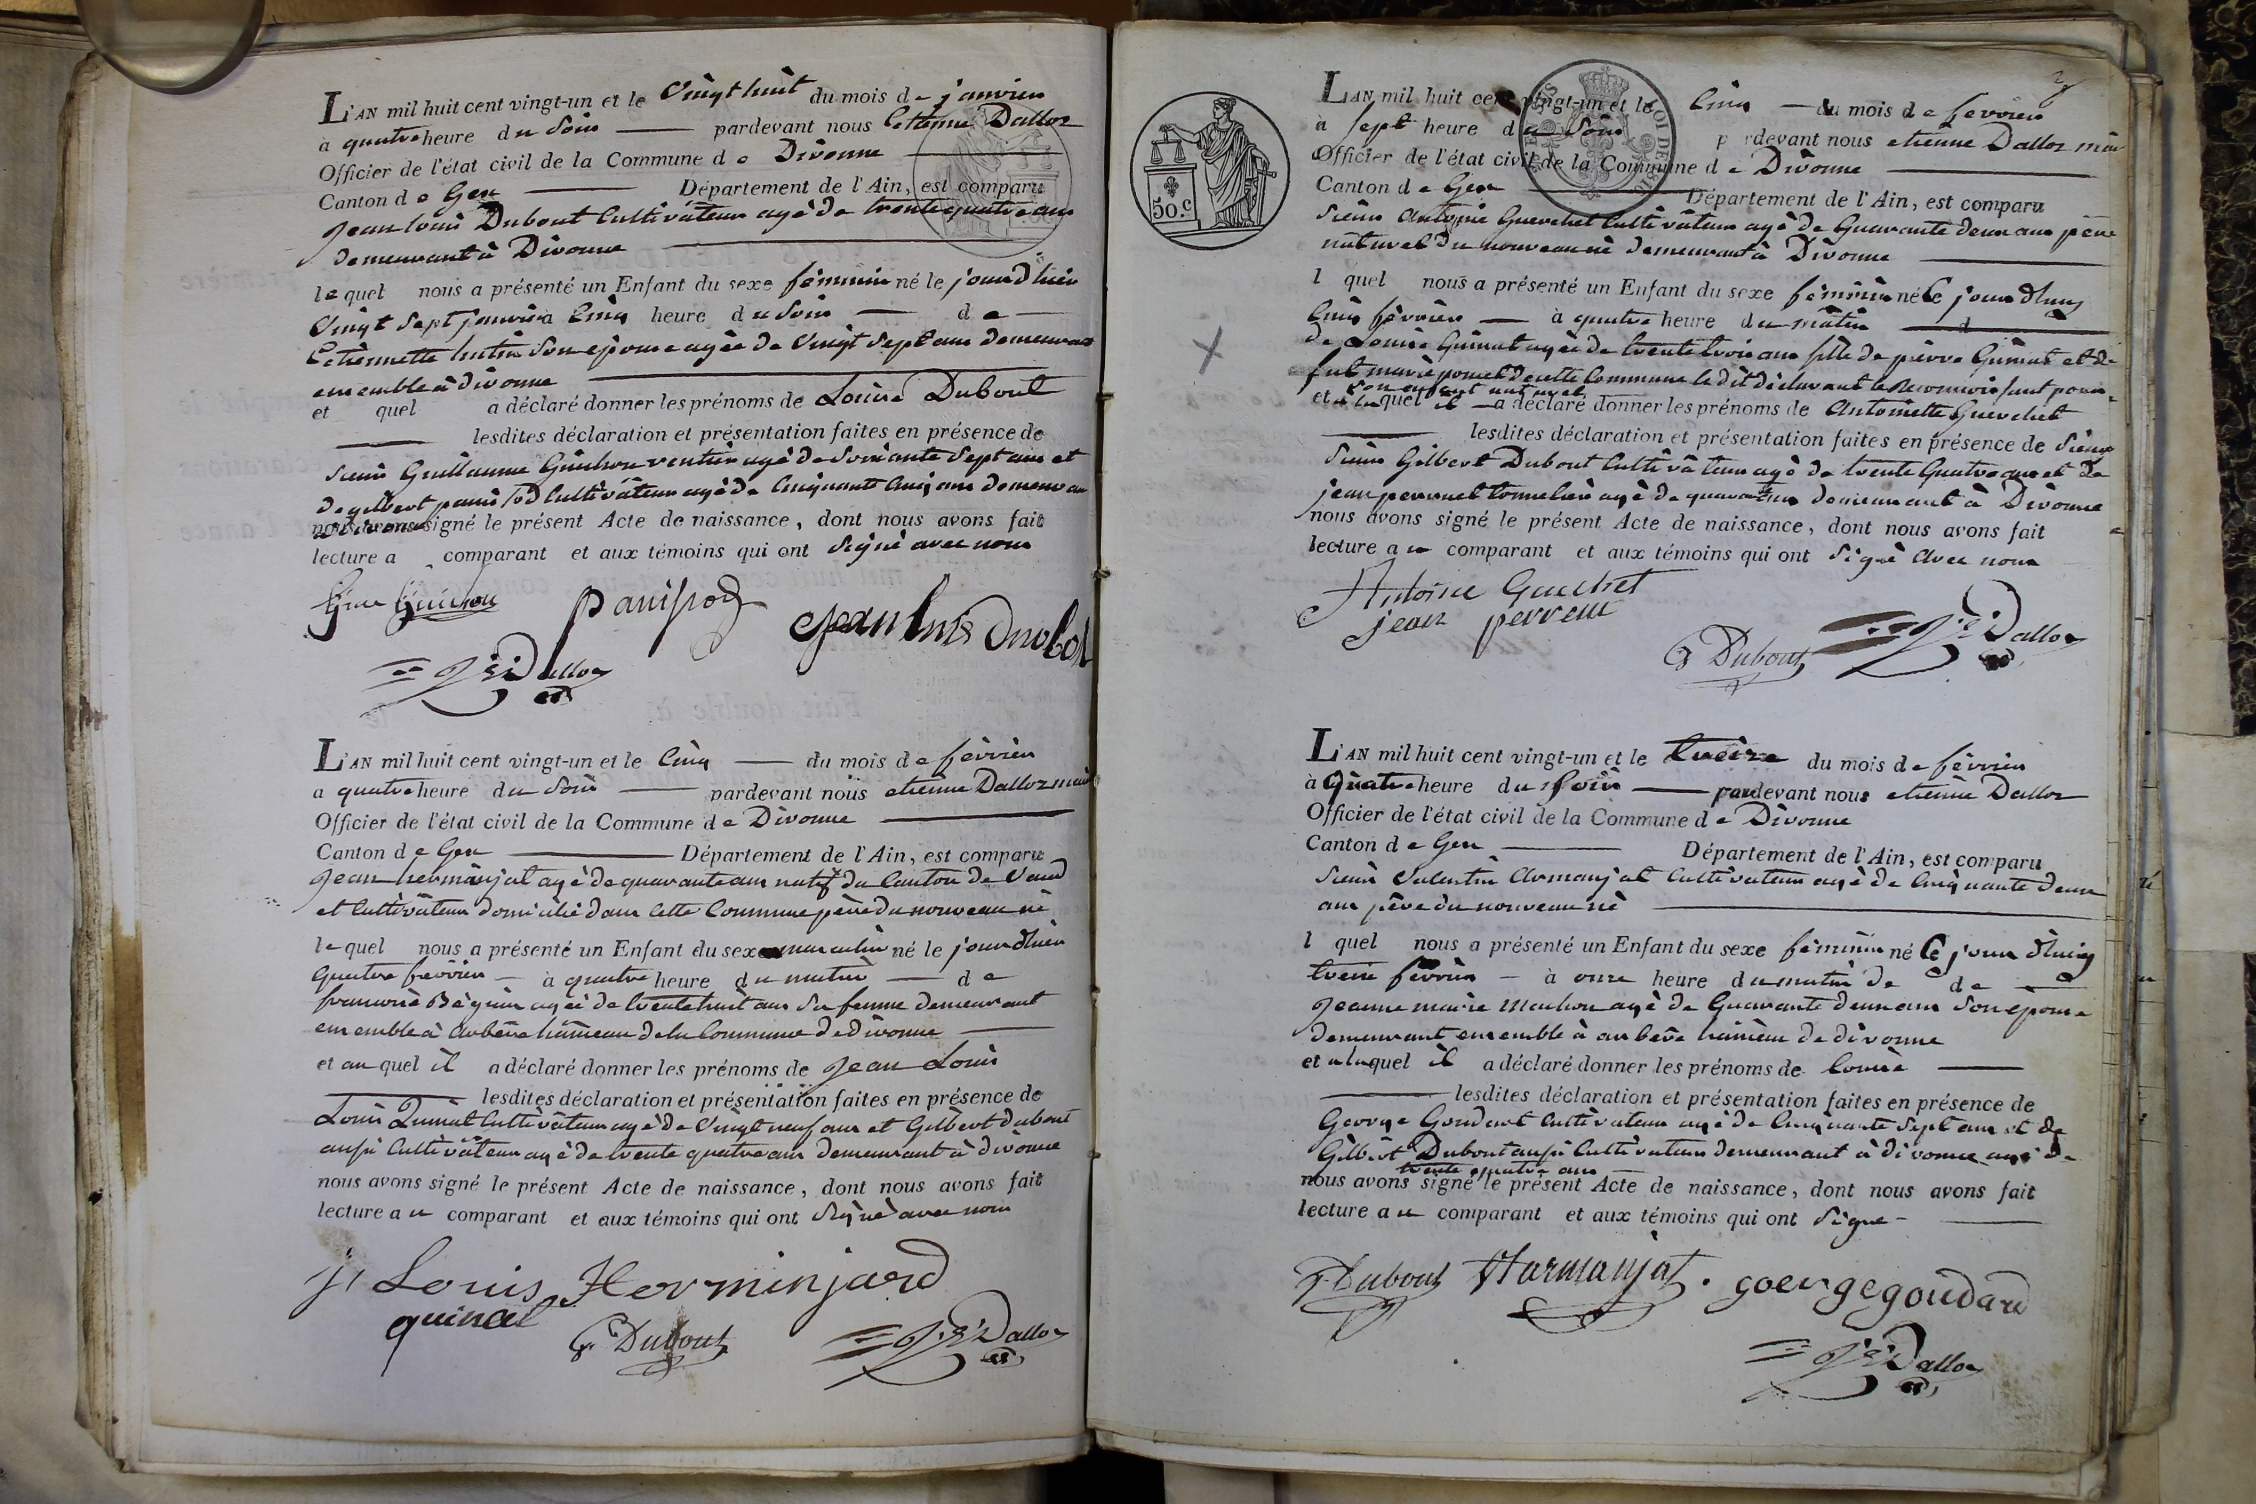 L'AN mil huit cent vingt-un et le vingt huit du mois de janvier
à quatre heure du soir pardevant nous Etienne Dalloz
Officier de l'état civil de la Commune de Divonne
Canton de Gex Département de l'Ain, est comparu
Jean louis Dubout Cultivateur agé de trente quatre ans
demeurant à Divonne
lequel nous a présenté un Enfant du sexe féminin né le jour d'hier
vingt sept janvier à Cinq heure du soir de
Etiennette son epouse agée de vingt sept ans demeurant
ensemble à divonne
et quel a déclaré donner les prénoms de Louise Dubout
lesdites déclaration et présentation faites en présence de
sieur Guillaume Guichon rentier agé de soixante sept ans et
de gilbert panissod Cultivateur agé de Cinquante Cinq ans demeurant
à Divonne
nous avons signé le présent Acte de naissance, dont nous avons fait
lecture a comparant et aux témoins qui ont signé avec nous
Gme Guichon panissod jean louis Dubout
Dalloz
L'AN mil huit cent vingt-un et le Cinq du mois de février
a quatre heure du soir pardevant nous etienne Dalloz maire
Officier de l'état civil de la Commune de Divonne
Canton de Gex Département de l'Ain, est comparu
Jean hermanjat agé de quarante ans natif du Canton de Vaud
et Cultivateur domicilié dans cette Commune père du nouveau né
lequel nous a présenté un Enfant du sexe masculin né le jour d'hier
quatre février à quatre heure du matin de
françoise Béguin agée de trente huit ans sa femme demeurant
ensemble à arbère hameau de la Commune de divonne
et au quel il a déclaré donner les prénoms de Jean Louis
lesdites déclaration et présentation faites en présence de
Louis Quinat Cultivateur agé de vingt neuf ans et Gilbert dubout
aussi Cultivateur agé de trente quatre ans demeurant à divonne
nous avons signé le présent Acte de naissance, dont nous avons fait
lecture au comparant et aux témoins qui ont signé avec nous
j. Louis Herminjard
quinat G. Dubout Dalloz
L'AN mil huit cent vingt-un et le Cinq du mois de fevrier
à sept heure du soir pardevant nous etienne Dalloz maire
Officier de l'état civil de la Commune de Divonne
Canton de Gex Département de l'Ain, est comparu
50.c
sieur Antoine Guerchet Cultivateur agé de Quarante deux ans père
naturel du nouveau né demeurant à Divonne
l quel nous a présenté un Enfant du sexe féminin né le jour d'huy
Cinq février à quatre heure du matin d
de Louise Quinat agée de trente trois ans fille de pierre Quinat et de
de cette Commune le dit déclarant le reconnoissant pour
son enfant naturel
et à laquel il a déclaré donner les prénoms de Antoinette Guerchet
lesdites déclaration et présentation faites en présence de sieur
sieur Gilbert Dubout Cultivateur agé de trente Quatre ans et de
jean perrenet tonnelier agé de quarante ans demeurant à Divonne
nous avons signé le présent Acte de naissance, dont nous avons fait
lecture au comparant et aux témoins qui ont signé avec nous
Antoine Guechet
jean perrene
G Dubout Dalloz
L'AN mil huit cent vingt-un et le treize du mois de février
à Quatre heure du soir pardevant nous etienne Dalloz
Officier de l'état civil de la Commune de Divonne
Canton de Gex Département de l'Ain, est comparu
sieur Valentin Armanjat Cultivateur agé de Cinquante deux
ans père du nouveau né
l quel nous a présenté un Enfant du sexe féminin né le jour d'huy
treize février à onze heure du matin de de
Jeanne marie agé de Quarante deux ans son epouse
demeurant ensemble à arbère hameau de divonne
et a laquel il a déclaré donner les prénoms de Louise
lesdites déclaration et présentation faites en présence de
George Goudard Cultivateur agé de Cinquante sept ans et de
Gilbert Dubout aussi Cultivateur demeurant à divonne agé de
trente quatre ans
nous avons signé le présent Acte de naissance, dont nous avons fait
lecture au comparant et aux témoins qui ont signé
G. Dubout V harmanjat goerge goudard
Dalloz